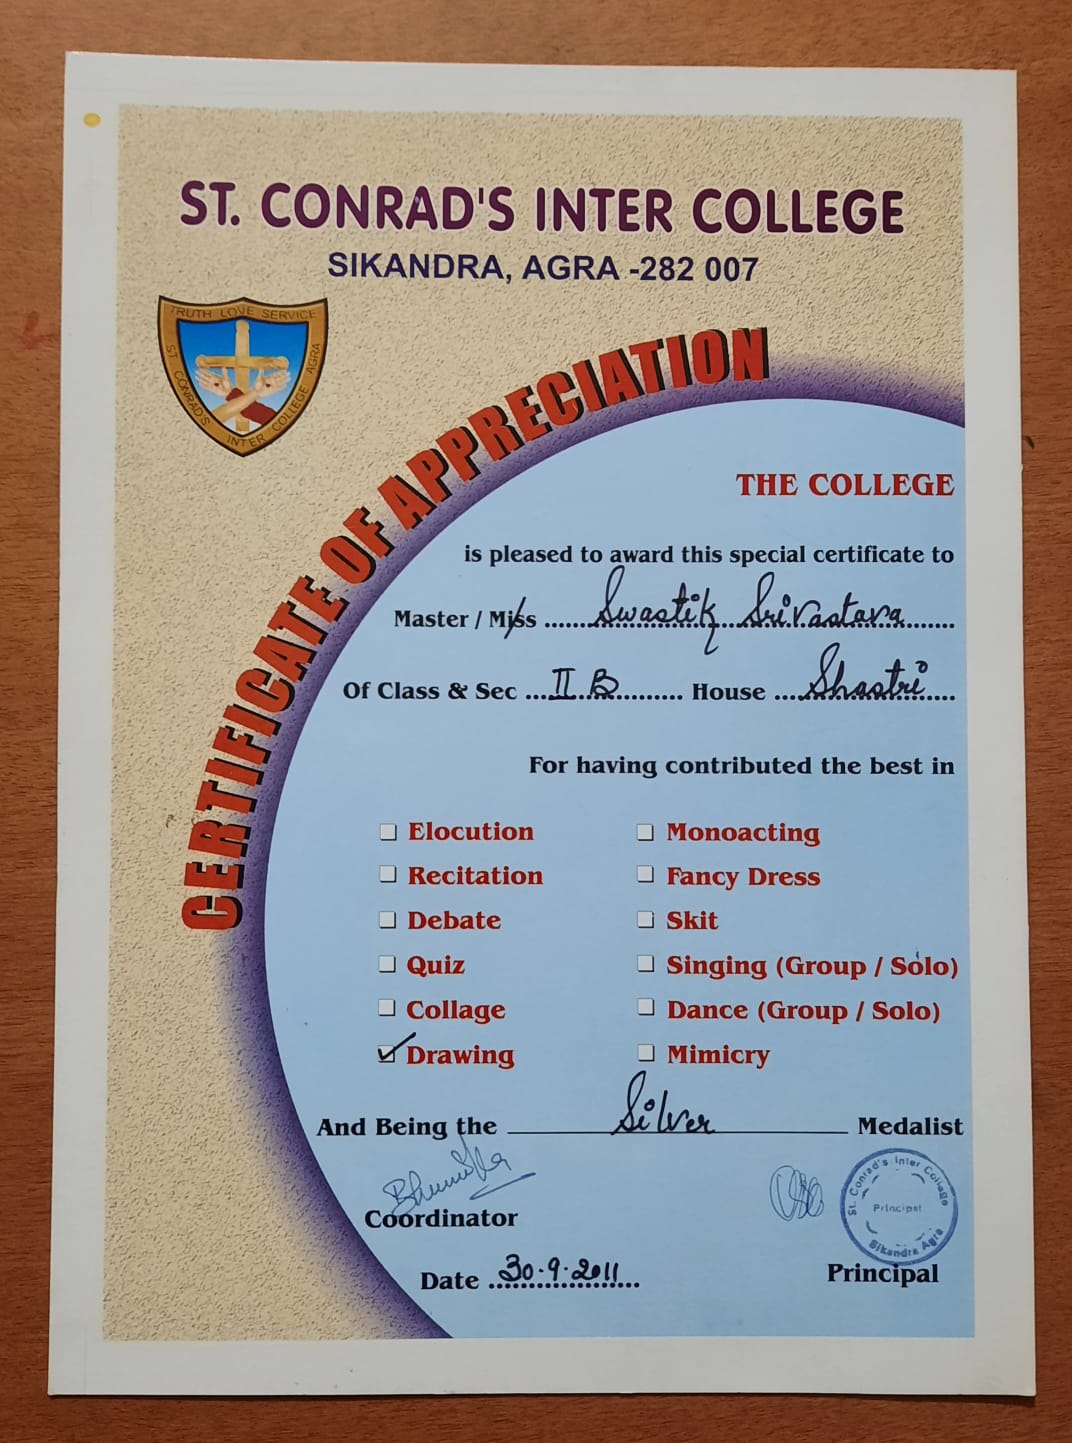 ST. CONRAD'S INTER COLLEGE
SIKANDRA, AGRA -282 007
TRUTH LOVE SERVICE
ST CONRAD'S INTER COLLEGE AGRA
CERTIFICATE OF APPRECIATION
THE COLLEGE
is pleased to award this special certificate to
Master / Miss Swastik Srivastava
Of Class & Sec II B House Shastri
For having contributed the best in
Elocution Monoacting
Recitation Fancy Dress
Debate Skit
Quiz Singing (Group / Solo)
Collage Dance (Group / Solo)
Drawing Mimicry
And Being the Silver Medalist
St. Conrad's Inter College
Principal
Sikandra Agra
Coordinator
Date 30.9.2011
Principal